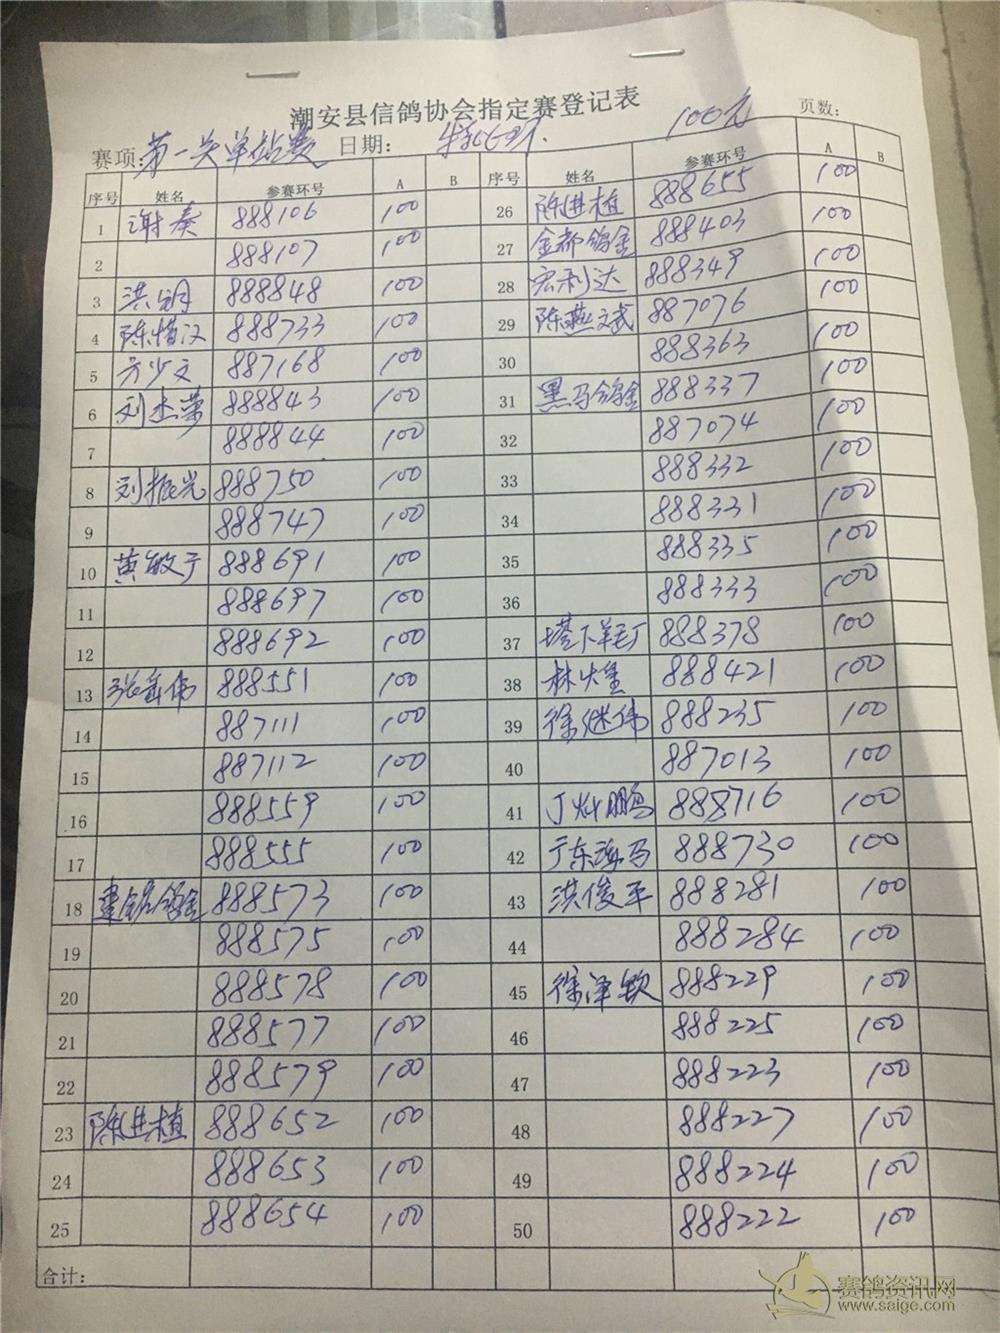 潮安县信鸽协会指定赛登记表
赛项:第一关单站赛 日期: 100元 页数:
序号 姓名 参赛环号 A B 序号 姓名 参赛环号 A B
1 谢奏 888106 100 26 陈进植 888655 100
2 888107 100 27 金都鸽舍 888403 100
3 洪钥 888848 100 28 宏利达 888349 100
4 陈惜汉 888733 100 29 陈燕文武 887076 100
5 方少文 887168 100 30 888363 100
6 刘杰荣 888843 100 31 黑马鸽舍 888337 100
7 888844 100 32 887074 100
8 刘振光 888750 100 33 888332 100
9 888747 100 34 888331 100
10 黄敏于 888691 100 35 888335 100
11 888697 100 36 888333 100
12 888692 100 37 塔下羊毛厂 888378 100
13 张 伟 888551 100 38 林火星 888421 100
14 887111 100 39 徐继伟 888235 100
15 887112 100 40 887013 100
16 888559 100 41 丁灿鹏 888716 100
17 888555 100 42 东海马 888730 100
18 建铭鸽舍 888573 100 43 洪俊平 888281 100
19 888575 100 44 888284 100
20 888578 100 45 徐泽钦 888229 100
21 888577 100 46 888225 100
22 888579 100 47 888223 100
23 陈进植 888652 100 48 888227 100
24 888653 100 49 888224 100
25 888654 100 50 888222 100
合计:
赛鸽资讯网
www.saige.com